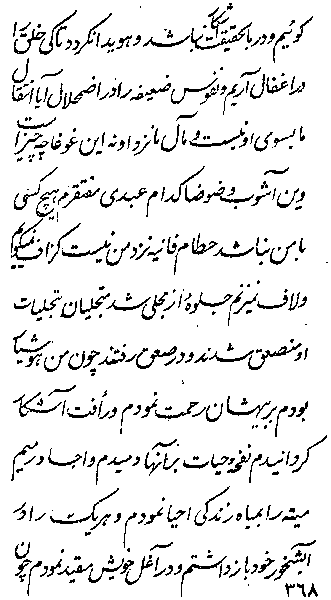 گوئیم و در با حقیقت آشکار نباشد و هویدا نگردد تا کی خلق را
در اغفال آریم و نفوس ضعیفه را در اضمحلال آیا انتقال
ما بسوی او نیست و مآل ما نزد او نه این غوغا چه چیز است
وین آشوب و ضوضا کدام عبدی مفتقرم هیچ کسی
با من نباشد حطام فانیه نزد من نیست گزاف نمیگویم
و لاف نمیزنم جلوهٔ از مجلی شد متجلیان تجلیات
او منصعق شدند و در صعق رفتند چون من هوشیار
بودم بر بیهشان رحمت نمودم و رأفت آشکار
گردانیدم نفحهٔ حیات بر آنها دمیدم و اجساد رمیم
میته را بمیاه زندگی احیا نمودم و هر یک را در
آبشخور خود بازداشتم و در آغل خویش مقید نمودم چون
۳۶۸